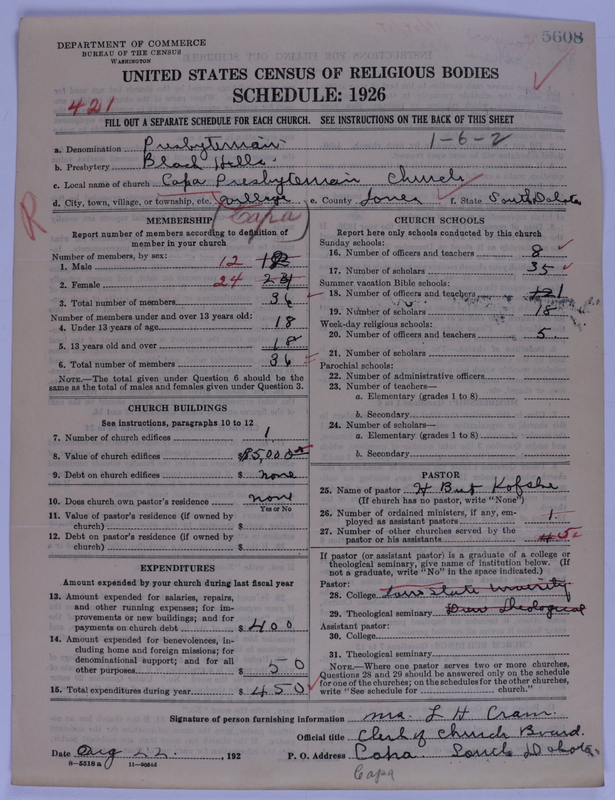 5608
DEPARTMENT OF COMMERCE
BUREAU OF THE CENSUS
WASHINGTON
UNITED STATES CENSUS OF RELIGIOUS BODIES
SCHEDULE: 1926
421
FILL OUT A SEPARATE SCHEDULE FOR EACH CHURCH. SEE INSTRUCTIONS ON THE BACK OF THIS SHEET
1-6-2
a. Denomination Presbyterian
b. Presbytery Black Hills
c. Local name of church Capa Presbyterian Church
d. City, town, village, or township, etc. village e. County Jones f. State South Dakota
R
(Capa)
MEMBERSHIP
Report number of members according to definition of
member in your church
Number of members, by sex:
1. Male 12 12
2. Female 24 24
3. Total number of members 36
Number of members under and over 13 years old:
4. Under 13 years of age 18
5. 13 years old and over 18
6. Total number of members 36
NOTE.—The total given under Question 6 should be the
same as the total of males and females given under Question 3.
CHURCH BUILDINGS
See instructions, paragraphs 10 to 12
7. Number of church edifices 1
8. Value of church edifices $5,000
9. Debt on church edifices $ none
10. Does church own pastor's residence none
Yes or No
11. Value of pastor's residence (if owned by
church) $
12. Debt on pastor's residence (if owned by
church) $
EXPENDITURES
Amount expended by your church during last fiscal year
13. Amount expended for salaries, repairs,
and other running expenses; for im-
provements or new buildings; and for
payments on church debt $ 400
14. Amount expended for benevolences, in-
cluding home and foreign missions; for
denominational support; and for all
other purposes $ 50
15. Total expenditures during year $ 450
CHURCH SCHOOLS
Report here only schools conducted by this church
Sunday schools:
16. Number of officers and teachers 8
17. Number of scholars 35
Summer vacation Bible schools:
18. Number of officers and teachers 1
19. Number of scholars 18
Week-day religious schools:
20. Number of officers and teachers 5
21. Number of scholars
Parochial schools:
22. Number of administrative officers
23. Number of teachers—
a. Elementary (grades 1 to 8)
b. Secondary
24. Number of scholars—
a. Elementary (grades 1 to 8)
b. Secondary
PASTOR
25. Name of pastor H Burt
(If church has no pastor, write "None")
26. Number of ordained ministers, if any, em-
ployed as assistant pastors 1
27. Number of other churches served by the
pastor or his assistants 5
If pastor (or assistant pastor) is a graduate of a college or
theological seminary, give name of institution below. (If
not a graduate, write "No" in the space indicated.)
Pastor:
28. College State University
29. Theological seminary Drew Theological
Assistant pastor:
30. College
31. Theological seminary
NOTE.—Where one pastor serves two or more churches,
Questions 28 and 29 should be answered only on the schedule
for one of the churches; on the schedules for the other churches,
write "See schedule for church."
Signature of person furnishing information Mrs. L H Cram.
Official title Clerk of Church Board.
Date Aug 22, 192 P. O. Address Capa. South Dakota.
8-5518 a
Capa